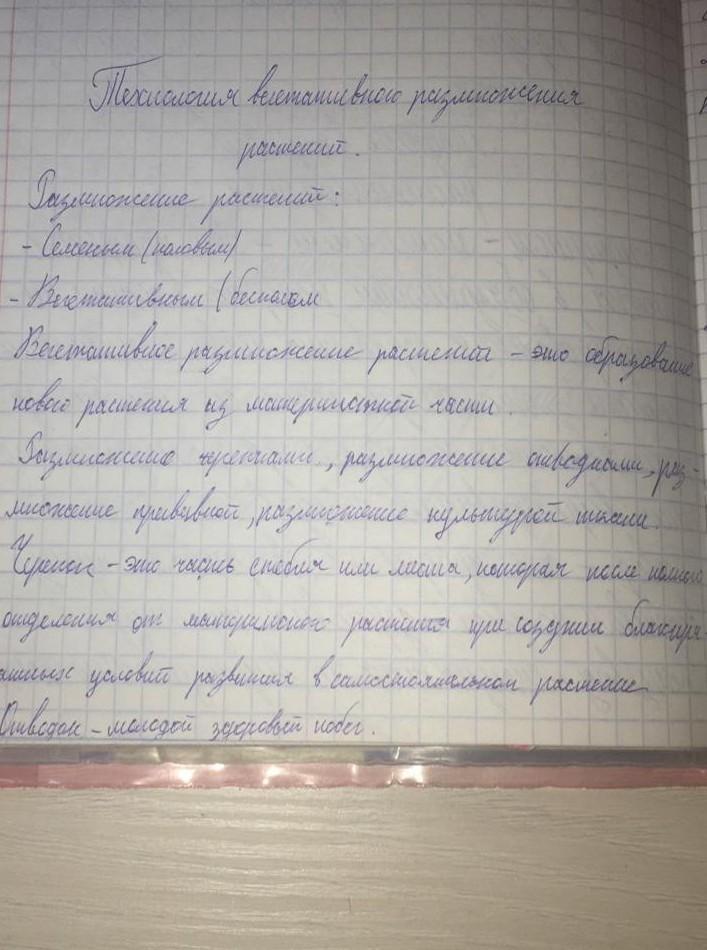 Технология вегетативного размножения
растений.
Размножение растений:
- Семеным (половым)
- Вегетативным (бесполем
Вегетативное размножение растений - это образование
нового растения из материнской части.
Размножение черенками, размножение отводками, раз-
множение прививкой, размножение культурой ткани.
Черенок - это часть стебля или листа, которая после полного
отделения от материнского растения при создании благопри-
ятных условий развития в самостоятельном растение
Отводок - молодой здоровый побег.